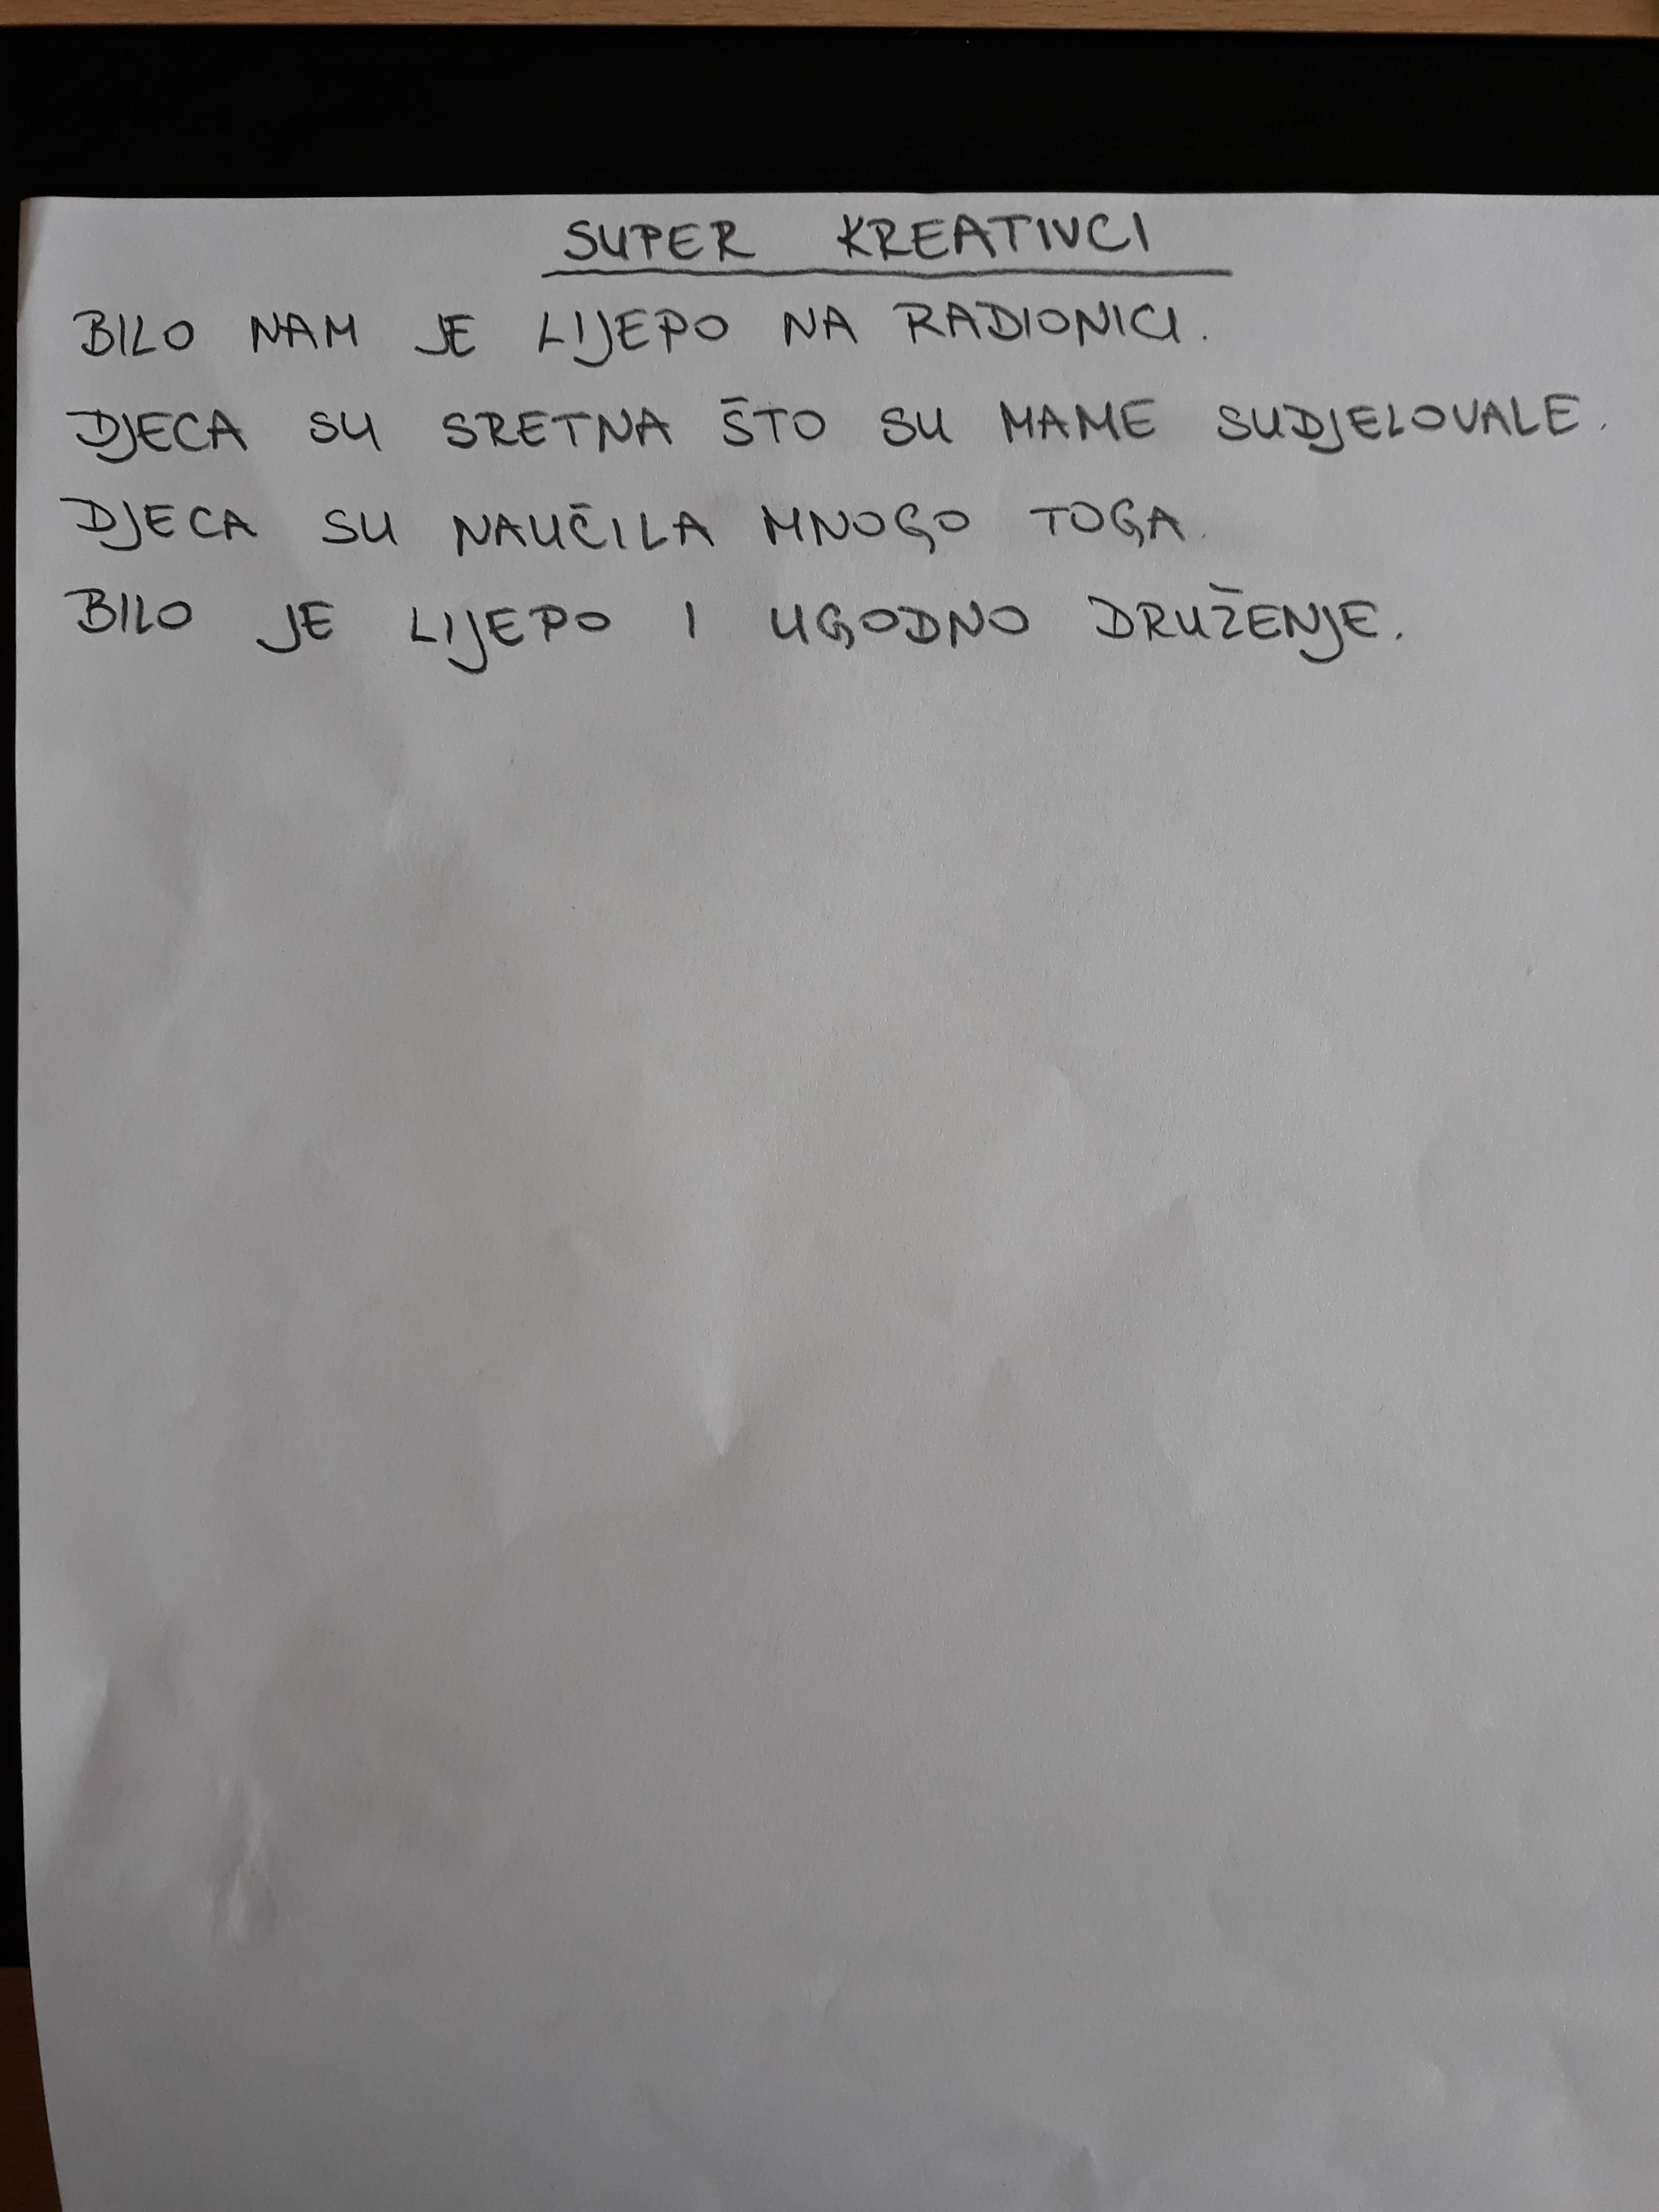 SUPER KREATIVCI
BILO NAM JE LIJEPO NA RADIONICI.
DJECA SU SRETNA ŠTO SU MAME SUDJELOVALE.
DJECA SU NAUČILA MNOGO TOGA.
BILO JE LIJEPO I UGODNO DRUŽENJE.